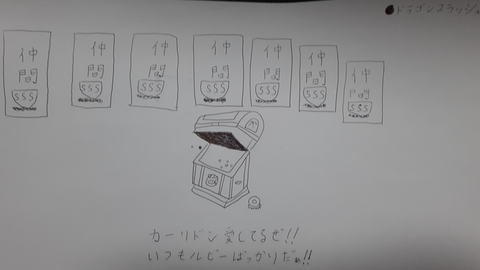 ●ドラゴンスラッシュ
仲間 SSS
仲間 SSS
仲間 SSS
仲間 SSS
仲間 SSS
仲間 SSS
仲間 SSS
カーリドン愛してるぜ!!
いつもルビーばっかりだぁ!!